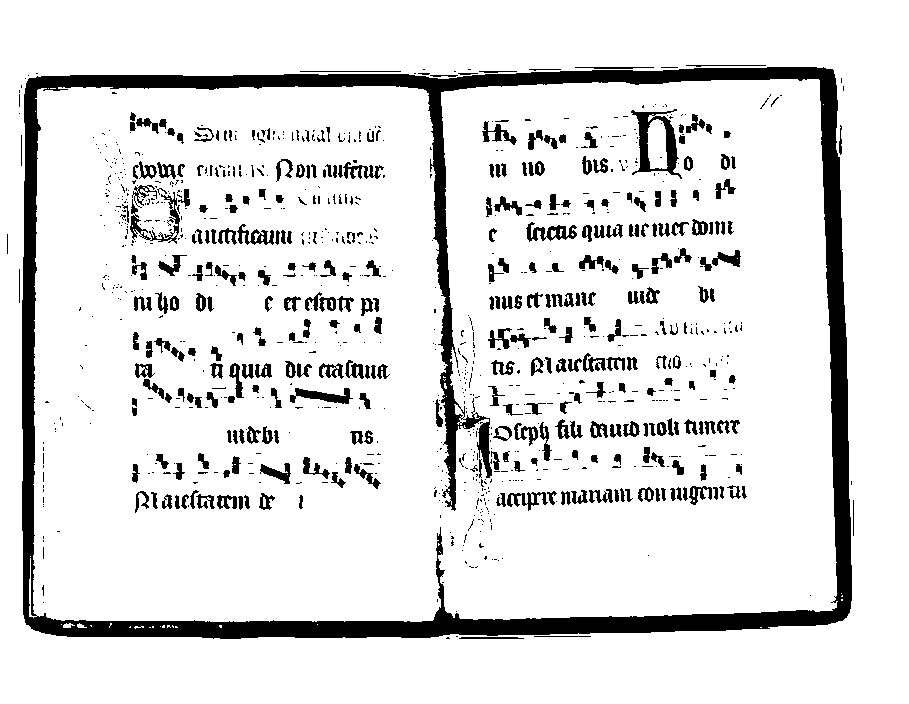 euouae Non auferetur.
anctificami
ni ho di e et estote pa
ra ti quia die crastina
uidebi tis.
Maiestatem de i
in uo bis. No di
e scietis quia ueniet domi
nus et mane uide bi
tis. Maiestatem
Oseph fili dauid noli timere
accipere mariam coniugem tu